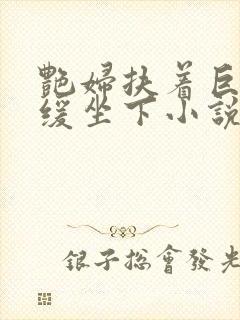 艷婦扶着巨
缓坐下小說
銀子总會發光